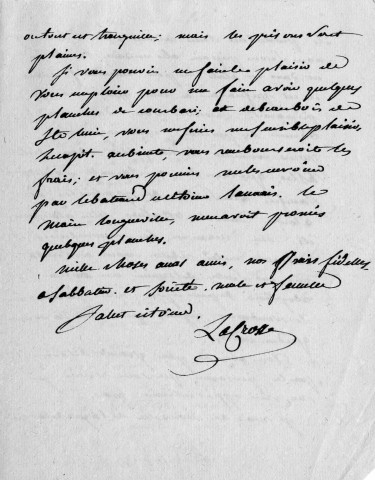 autour est tranquille; mais les prisons sont
pleines.
Si vous pouviez me faire le plaisir de
vous employer pour me faire avoir quelques
planches de courbari; et de beau bois de
Ste Lucie, vous me feriez un sensible plaisir,
au bienté, vous rembourseroit les
frais; et vous pouviez me les envoyer
par le bateau le
Maire Longueville, m'en avoit promis
quelques planches.
Mille choses aux amis, nos frères fidelles,
a Sabbatier et Société. male et femelle
Salut citoyen.
LaCrosse